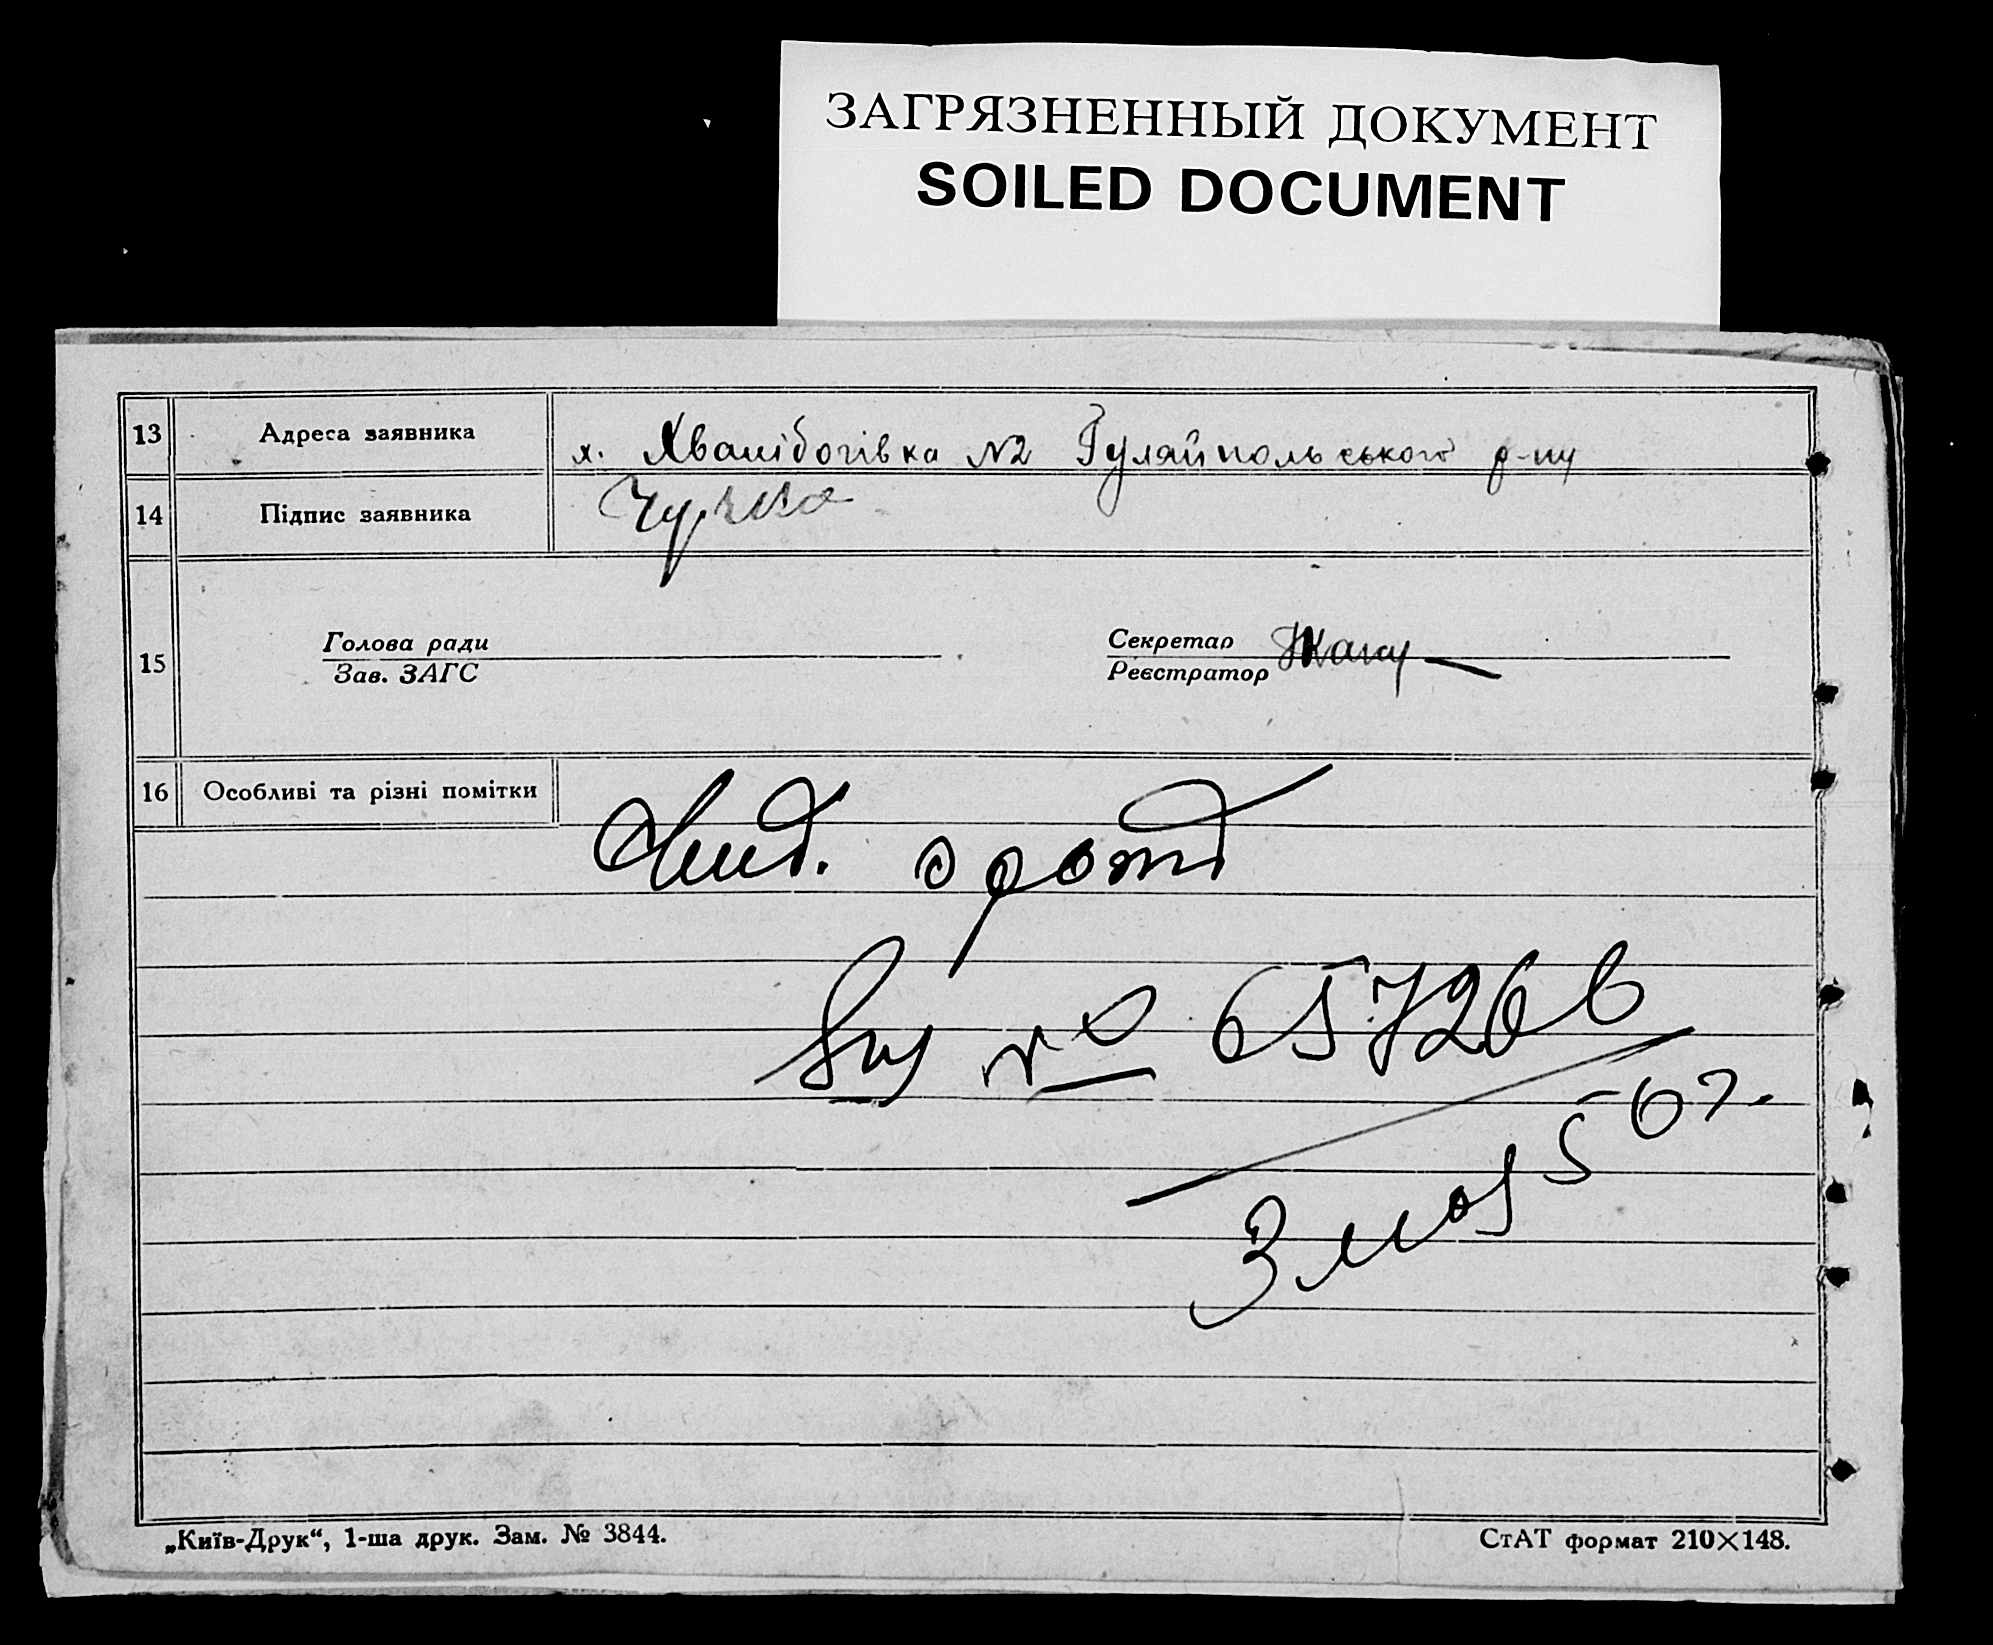 ЗАГРЯЗНЕННЫЙ ДОКУМЕНТ
SOILED DOCUMENT
13 Адреса заявника х. Хвалібогівка №2 Гуляйпольського р-ну
14 Підпис заявника
15 Голова ради Секретар
Зав. ЗАГС Реєстратор
16 Особливі та різні помітки
о рожд
№ 657266
3 56г.
„Київ-Друк“, 1-ша друк. Зам. № 3844. СтАТ формат 210×148.